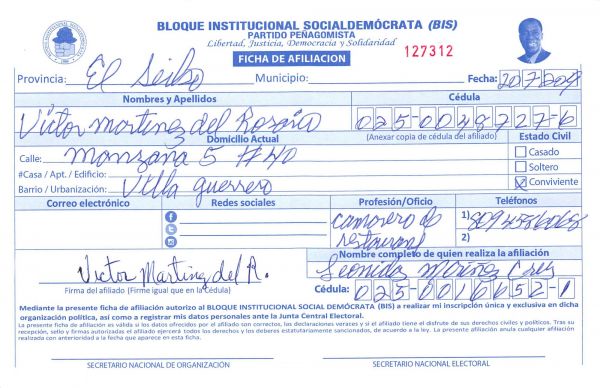 BLOQUE INSTITUCIONAL SOCIALDEMÓCRATA (BIS)
PARTIDO PEÑAGOMISTA
Libertad, Justicia, Democracia y Solidaridad
127312
FICHA DE AFILIACION
Provincia: El Seibo Municipio: Fecha:
Nombres y Apellidos Cédula
Víctor Martinez del Rosario 025-0048727-6
Domicilio Actual (Anexar copia de cédula del afiliado) Estado Civil
Calle: Manzana 5 #40 Casado
#Casa / Apt. / Edificio: Soltero
Barrio / Urbanización: Villa guerrero Conviviente
Correo electrónico Redes sociales Profesión/Oficio Teléfonos
camarero de 1)
restaurant 2)
Nombre completo de quien realiza la afiliación
Victor Martinez del R. Leonida
Firma del afiliado (Firme igual que en la Cédula) Cédula: 025-0016652-1
Mediante la presente ficha de afiliación autorizo al BLOQUE INSTITUCIONAL SOCIAL DEMÓCRATA (BIS) a realizar mi inscripción única y exclusiva en dicha
organización política, así como a registrar mis datos personales ante la Junta Central Electoral.
La presente ficha de afiliación es válida si los datos ofrecidos por el afiliado son correctos, las declaraciones veraces y si el afiliado tiene el disfrute de sus derechos civiles y políticos. Tras su
recepción, sello y firmas autorizadas el afiliado ejercerá todos los derechos y los deberes estatutariamente sancionados, de acuerdo a la ley. La presente afiliación anula cualquier afiliación
realizada con anterioridad a la fecha que aparece en esta ficha.
SECRETARIO NACIONAL DE ORGANIZACIÓN SECRETARIO NACIONAL ELECTORAL